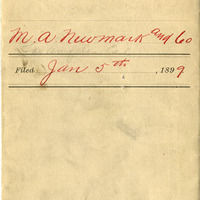 M. A Newmark and Co
Filed Jan 5th, 1899